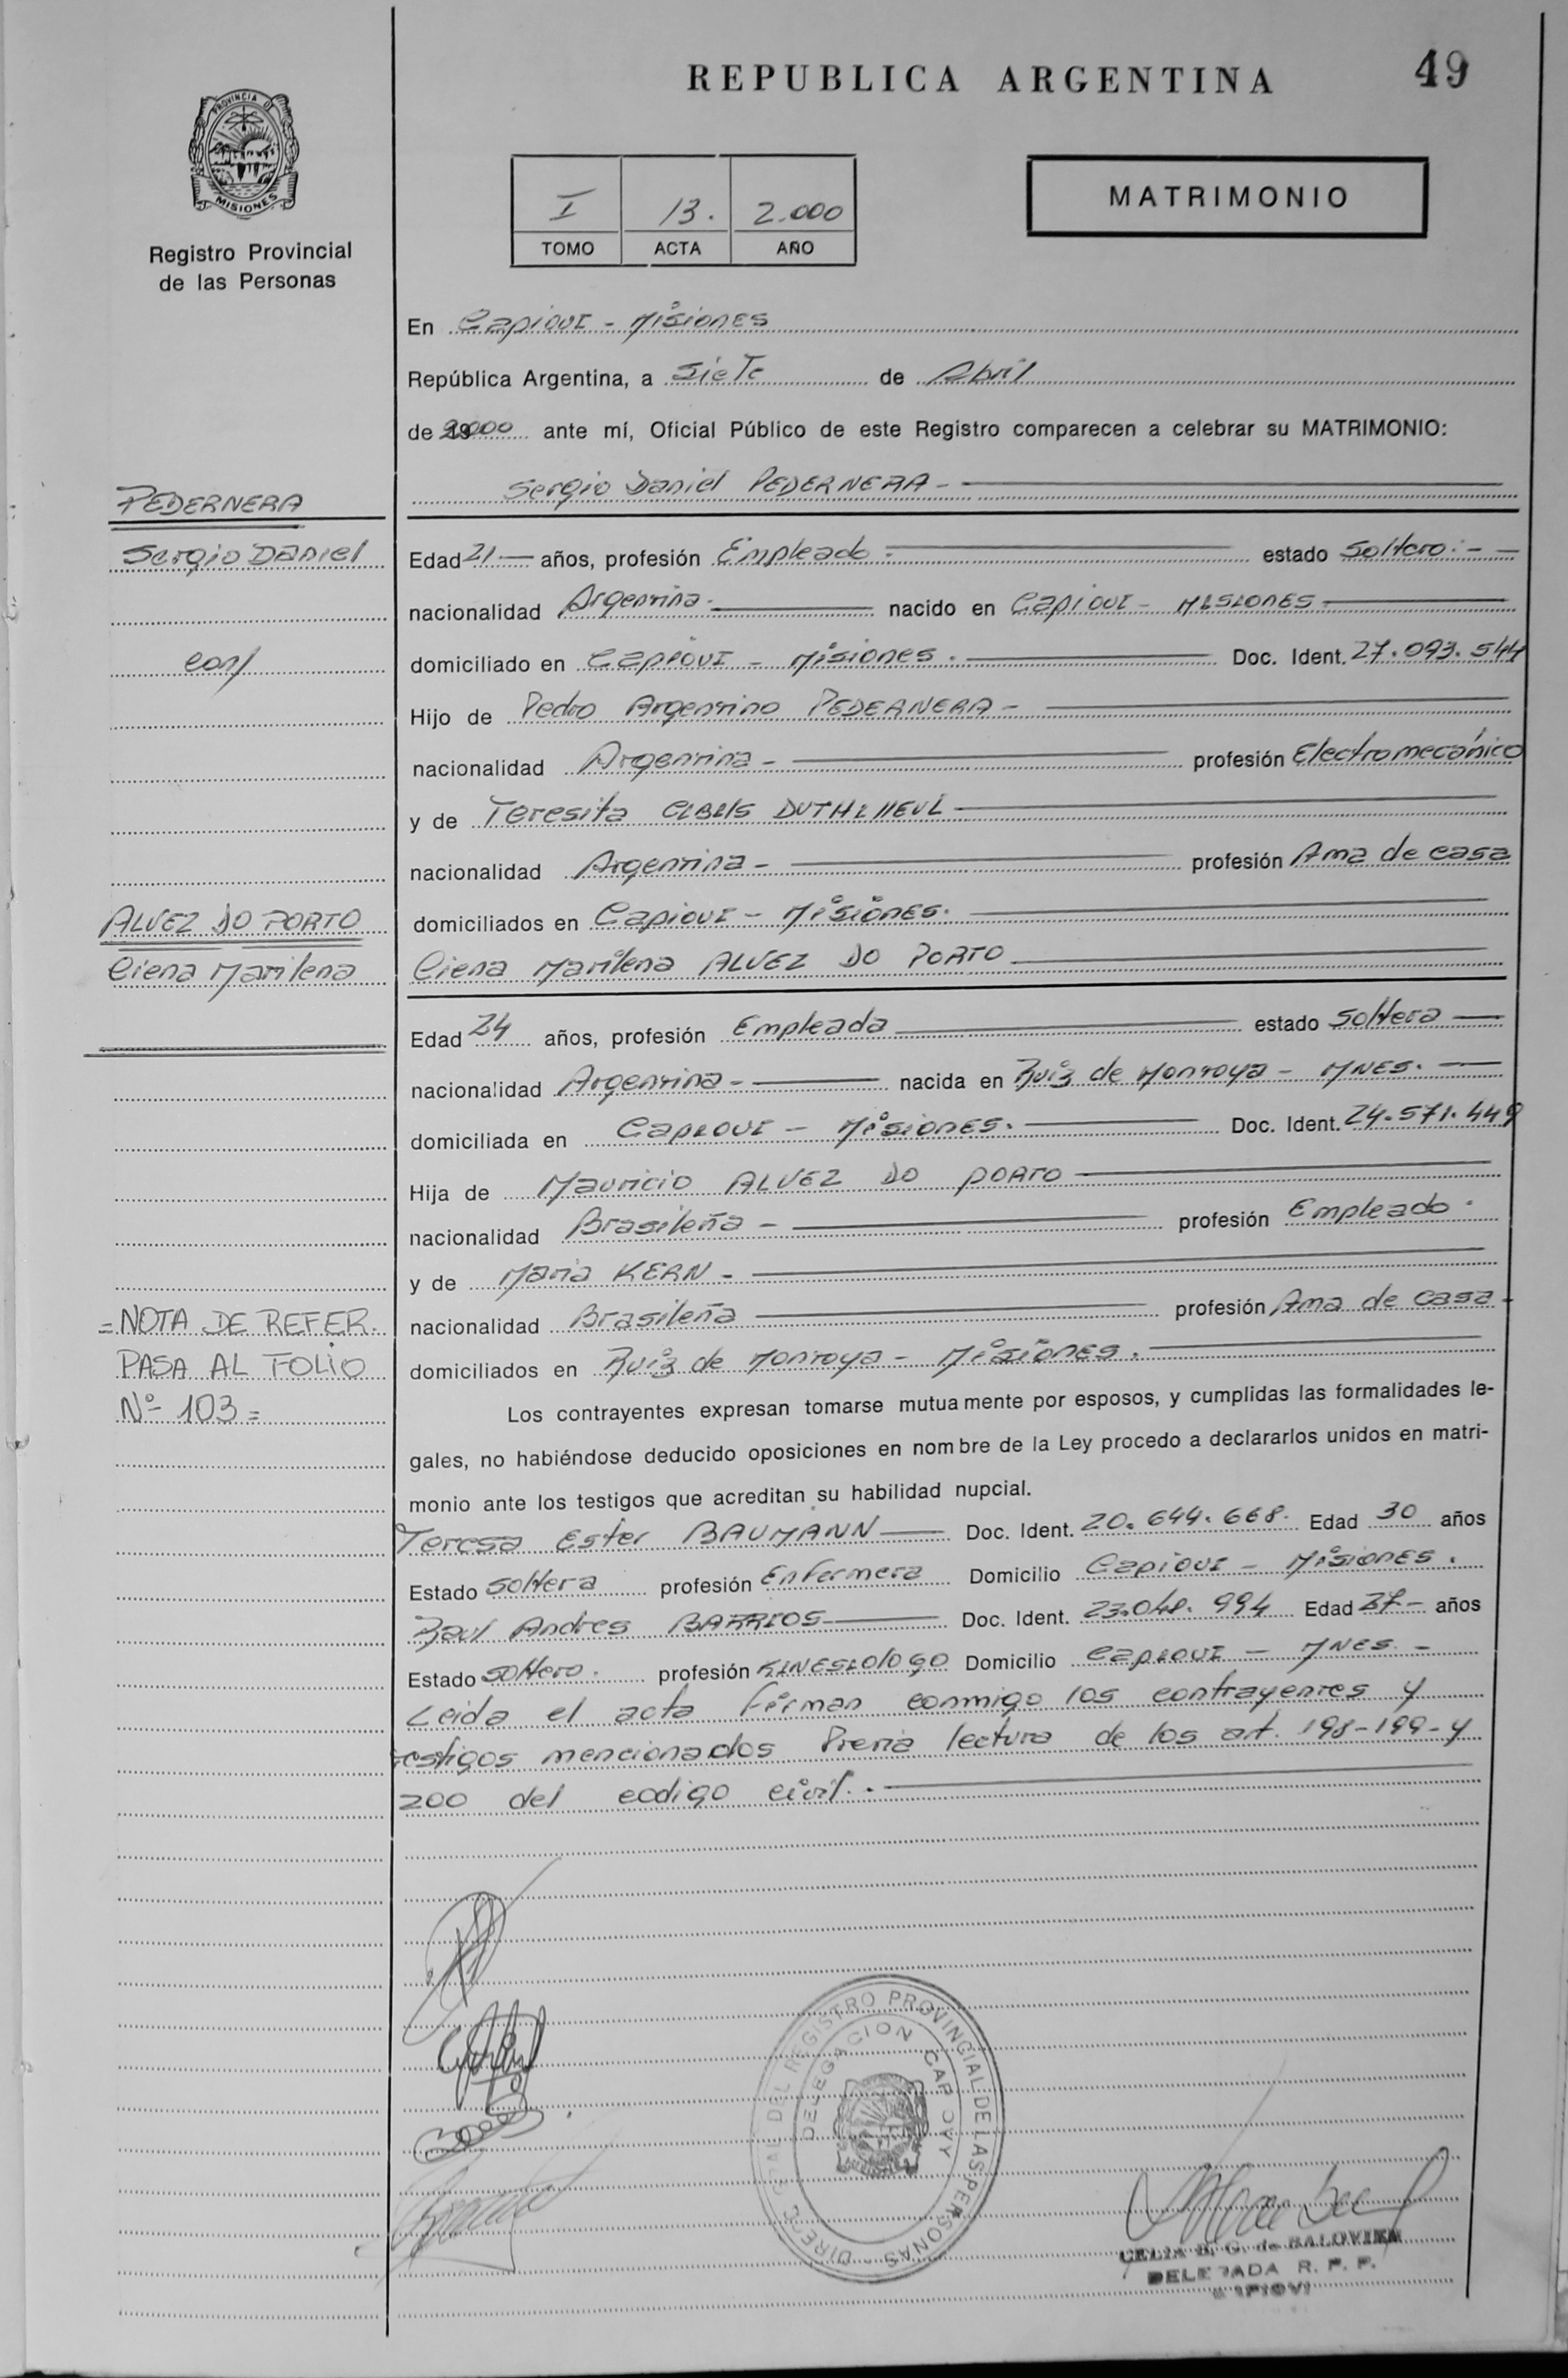 REPUBLICA ARGENTINA
49
PROVINCIA DE
MISIONES
Registro Provincial
de las Personas
I 13. 2.000
TOMO ACTA AÑO
MATRIMONIO
En Capiovi - Misiones
República Argentina, a Siete de Abril
de 2000 ante mí, Oficial Público de este Registro comparecen a celebrar su MATRIMONIO:
PEDERNERA
Sergio Daniel PEDERNERA -
Sergio Daniel
Edad 21 — años, profesión Empleado - estado Soltero. - -
nacionalidad Argentina - nacido en Capiovi - Misiones -
con/
domiciliado en Capiovi - Misiones. - Doc. Ident. 27.093.544
Hijo de Pedro Argentino PEDERNERA -
nacionalidad Argentina - profesión Electromecánico
y de Teresita
nacionalidad Argentina - profesión Ama de casa
ALVEZ DO PORTO
domiciliados en Capiovi - Misiones.
Marilena
Marilena ALVEZ DO PORTO
Edad 24 años, profesión Empleada estado Soltera —
nacionalidad Argentina - nacida en Ruiz de Montoya - MNES. —
domiciliada en Capiovi - Misiones. — Doc. Ident. 24.571.449
Hija de Mauricio ALVEZ DO PORTO
nacionalidad Brasileña - profesión Empleado.
y de Maria KERN -
= NOTA DE REFER.
nacionalidad Brasileña profesión Ama de casa -
PASA AL FOLIO
domiciliados en Ruiz de Montoya - Misiones.
Nº 103 =
Los contrayentes expresan tomarse mutuamente por esposos, y cumplidas las formalidades le-
gales, no habiéndose deducido oposiciones en nombre de la Ley procedo a declararlos unidos en matri-
monio ante los testigos que acreditan su habilidad nupcial.
Teresa Ester BAUMANN — Doc. Ident. 20.644.668. Edad 30 años
Estado Soltera profesión Enfermera Domicilio Capiovi - Misiones.
Raul Andres BARRIOS — Doc. Ident. 23.048.994 Edad 27 - años
Estado Soltero. profesión Kinesiologo Domicilio Capiovi - MNES -
Leida el acta firman conmigo los contrayentes y
testigos mencionados Previa lectura de los art. 198-199-y
200 del codigo civil. -
DIREC. GRAL. DEL REGISTRO PROVINCIAL DE LAS PERSONAS
DELEGACION
CELIA B. G. de BALOVIER
DELEGADA R. P. P.
CAPIOVI